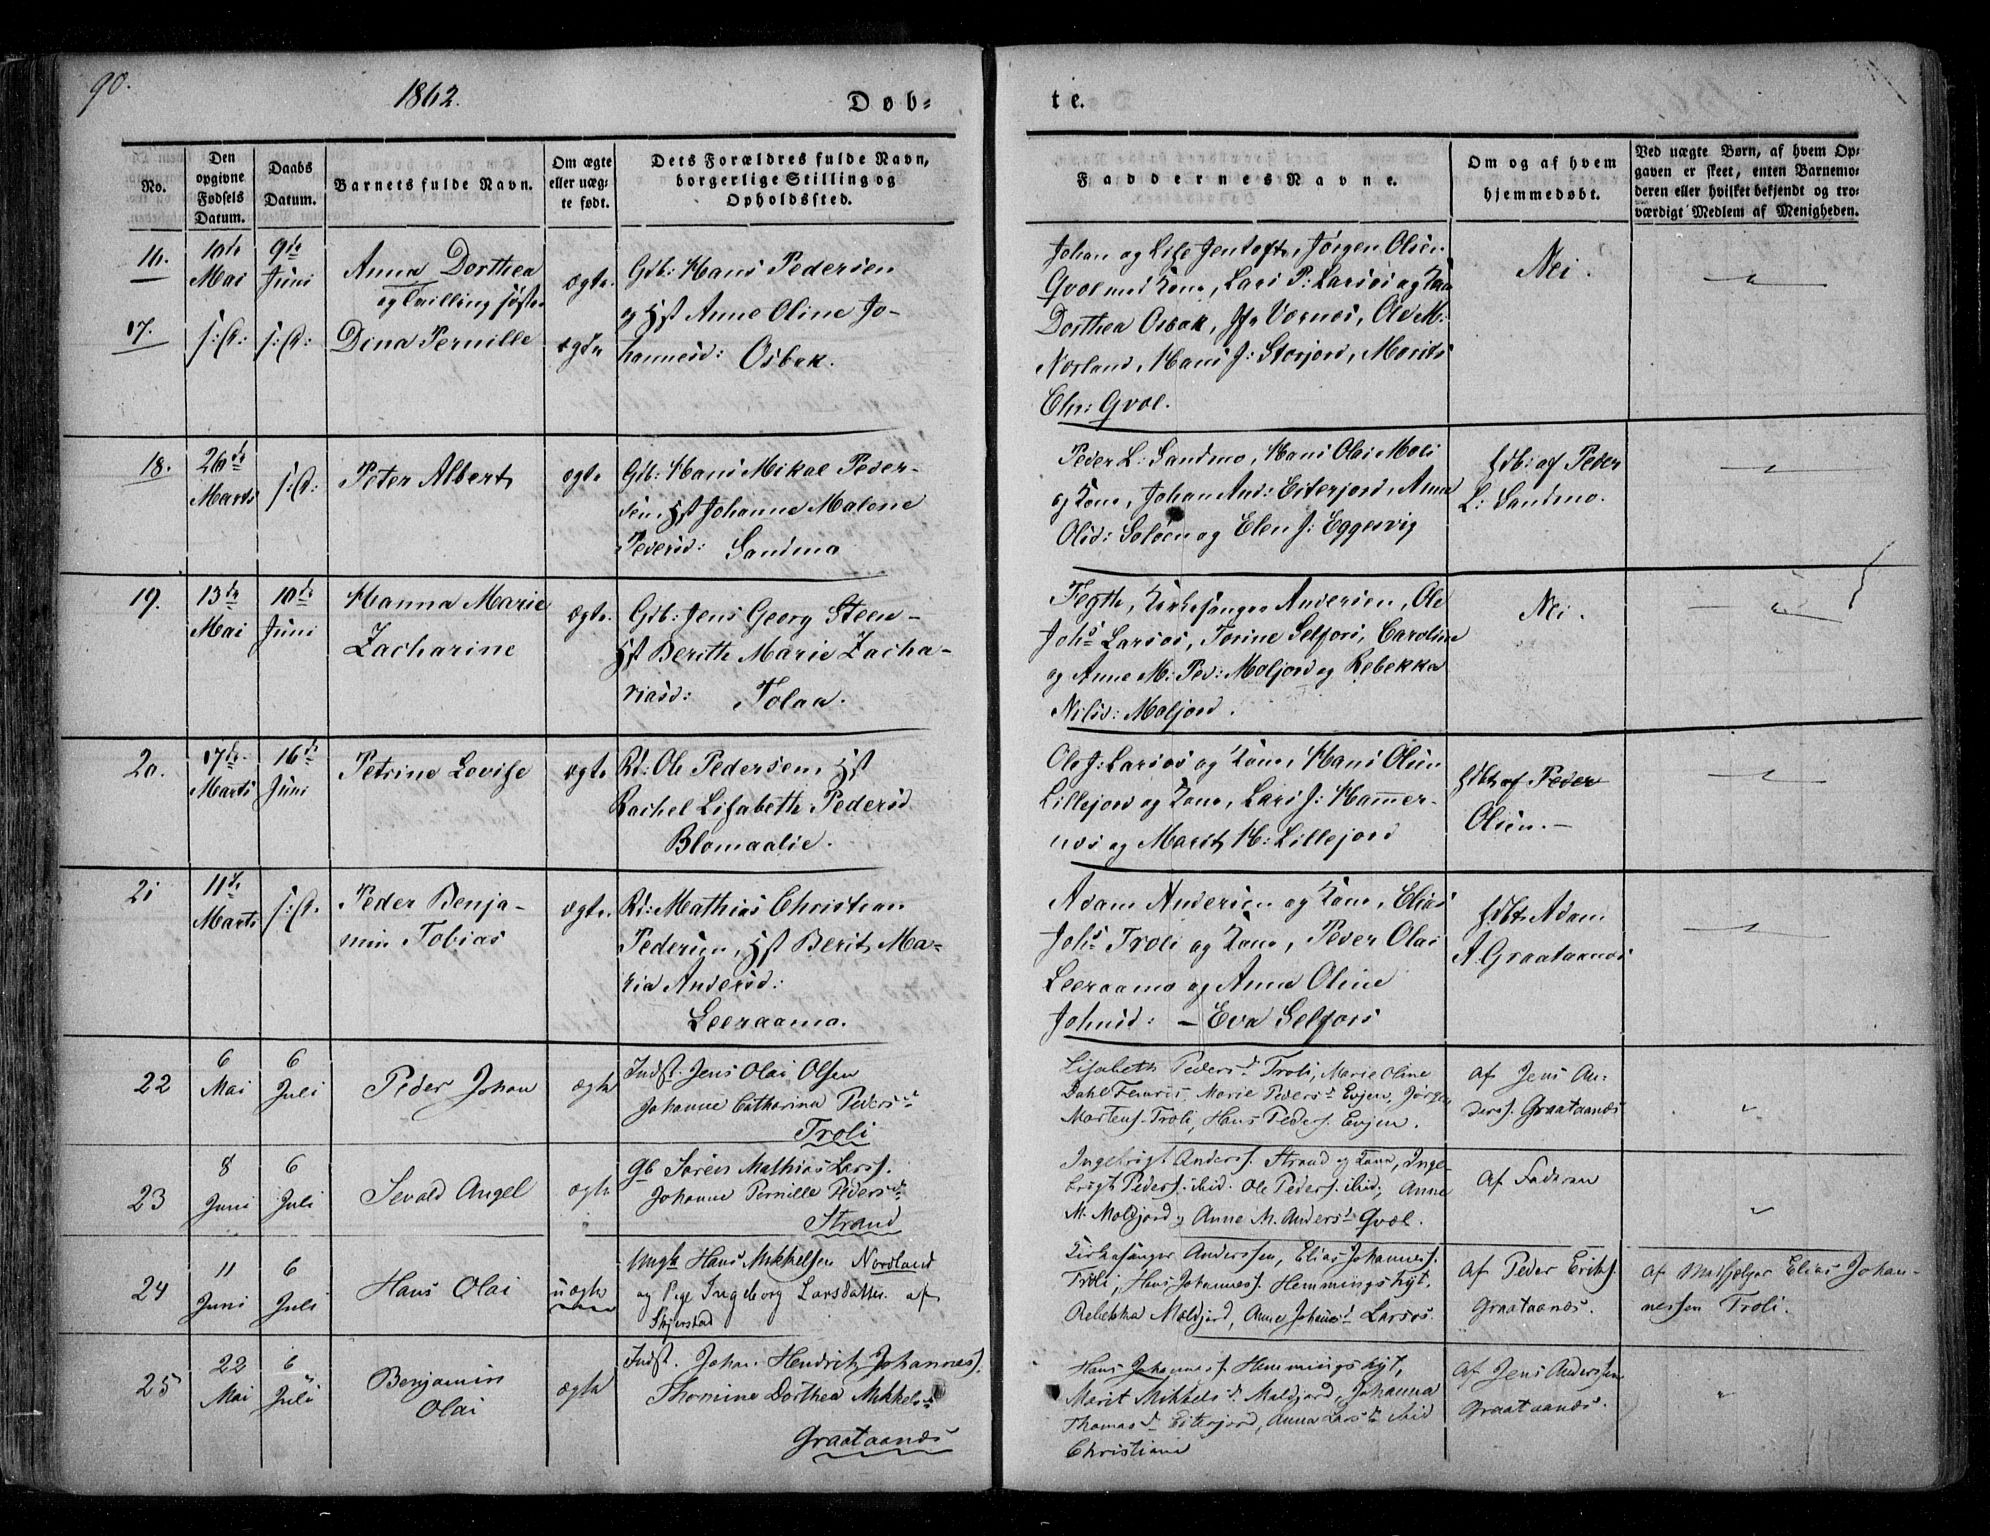 90.
1862.
Døb-
te.
No.
Den
opgivne
Fødsels
Datum.
Daabs
Datum.
Barnets fulde Navn.
Om ægte
eller uæg-
te født.
Dets Forældres fulde Navn,
borgerlige Stilling og
Opholdssted.
Faddernes Navne.
Om og af hvem
hjemmedøbt.
Ved uægte Børn, af hvem Op-
gaven er skeet, enten Barnemo-
deren eller hvilket bekjendt og tro-
værdigt Medlem af Menigheden.
16.
10de
Mai
9de
Juni
Anna Dorthea
og Tvilling søster
ægte
Gdb: Hans Pedersen
og Hst Anne Oline Jo-
hannesd: Osbak.
Johan og Lise Jentoft, Jørgen Olsen
Qvæl med Kone, Lars P: Larsos og Kone
Dorthea Osbak, Vornes, Ole M:
Norland, Hans J: Storjord, Morits
Chr: Qvæl.
Nei.
17.
s: D:
s: D:
Dina Pernille
ægte
18.
26de
Marts
s: D:
Peter Albert
ægte
Gdb: Hans Mikal Peder-
sen, Hst Johanne Malene
Pedersd: Sandmo
Peder L: Sandmo, Hans Ols: Moli
og Kone, Johan And: Eiterjord, Anna
Olsd: Soløen og Elen J: Eggesvig
Hdb: af Peder
L: Sandmo.
19.
13de
Mai
10de
Juni
Hanna Marie
Zacharine
ægte.
Gdb: Jens Georg Steen-
Hst Berith Marie Zacha-
riasd: Tolaa.
Fegth, Kirkesanger Andersen, Ole
Johs Larsos, Torine Selfors, Caroline
og Anne M: Ped: Moljord og Rebekka
Nilsd: Moljord.
Nei.
20.
17de
Marts
16de
Juni
Petrine Lovise
ægte
Rd: Ole Pedersen, Hst
Rachel Lisabeth Pedersd
Blomaalie.
Ole J: Larsos og Kone, Hans Olsen
Lillejord og Kone, Lars J: Hammer-
nes og Marit H: Lillejord
Hdbt af Peder
Olsen.-
21
11te
Marts
s: D.
Peder Benja-
min Tobias
ægte.
Rd: Mathias Christian
Pedersen, Hst Berit Ma-
ria Andersd:
Leeraamo.
Adam Andersen og Kone, Elias
Johs Troli og Kone, Peder Olai
Leeraamo og Anna Oline
Johnsd: - Eva Selfors
Hdbt Adam
A. Graataanæs
22
6
Mai
6
Juli
Peder Johan
ægte
Indst. Jens Olai Olsen
Johanne Catharina Pedersd
Troli
Lisabeth Pedersd Troli, Marie Oline
Dahl Marie Pedersd Evjen, Jørgen
Martens. Troli, Hans Peders. Evjen.
af Jens An-
derss. Graataanæs
23
8
Juni
6
Juli
Sevald Angel
ægte
gb Søren Mathias Larss.
Johanne Pernille Pedersd
Strand
Ingebrigt Anderss. Strand og Kone, Inge-
brigt Peders. ibid. Ole Peders. ibid, Anne
M. Moldjord, Anne M. Andersd Qvæl.
af Faderen
24
11
Juni
6
Juli
Hans Olai
uægte
Ungk Hans Mikkelsen Nordland
og Pige Ingeborg Larsdatter af
Skjerstad
Kirkesanger Anderssen, Elias Johanness.
Troli, Hans Johanness. Hemmingshyt,
Rebekka Moldjord, Anne Johansd Larsos.
af Peder Eriks.
Graataanæs.
af Medhjælper Elias Johan-
nessen Troli.
25
22
Mai
6
Juli
Benjamin
Olai
ægte
Indst. Johan Hendrik Johanness.
Thomine Dorthea Mikkelsd
Graataanæs
Hans Johanness. Hemmingshyt,
Marit Mikkelsd Moldjord, Johanna
Thomasd Eiterjord, Anna Larsd ibid
Christiane
af Jens Anderssen
Graataanæs.